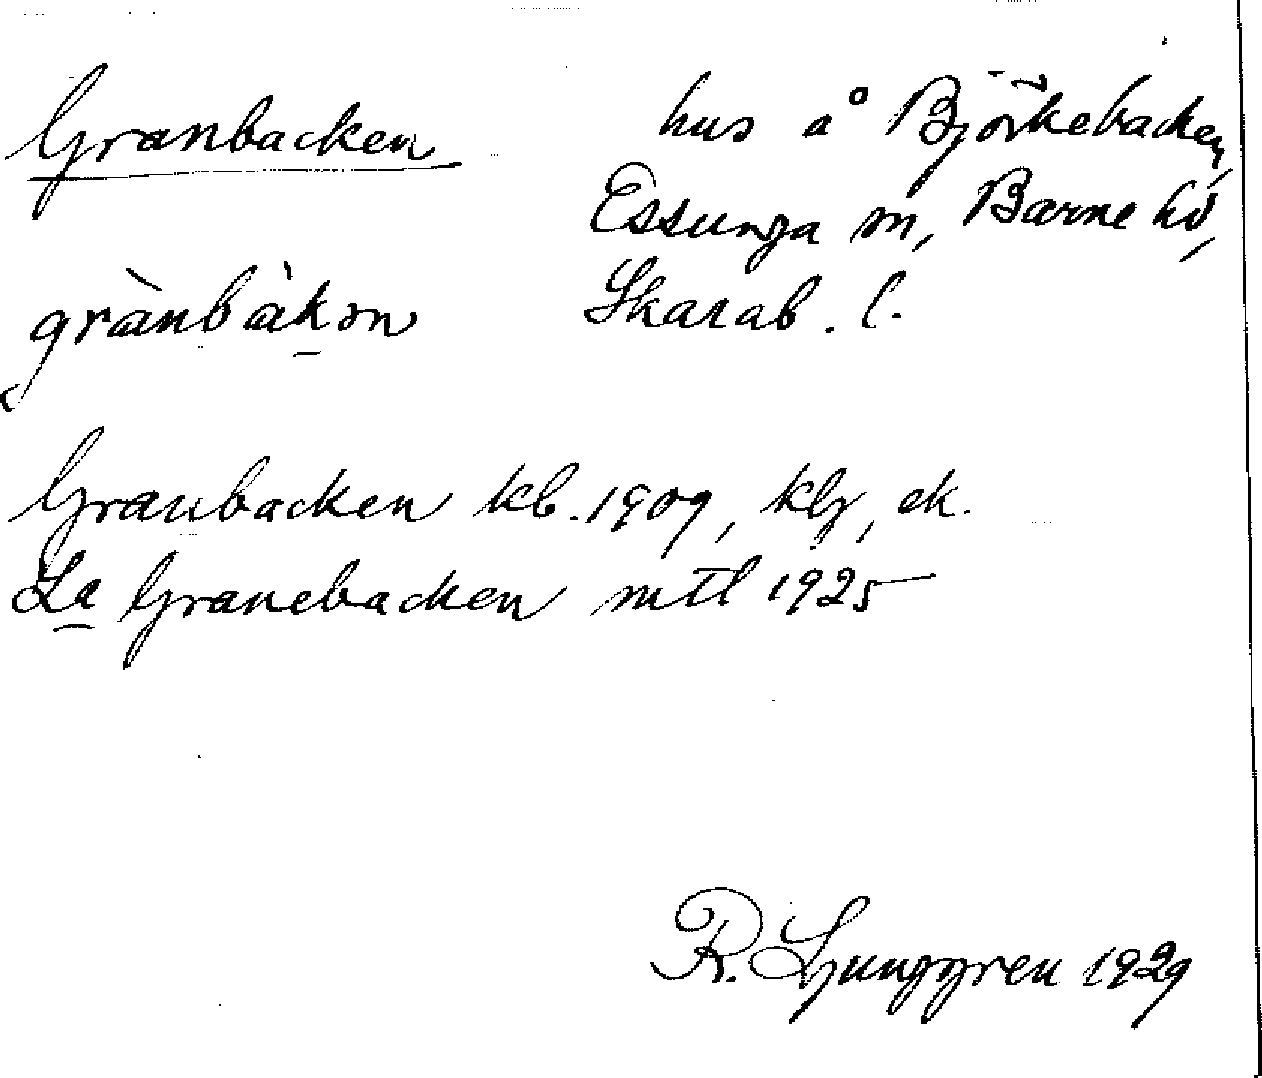 Granbacken hus å Björkebacken,
Essunga sn, Barne hd,
grànbàkən Skarab. l.
Granbacken kb. 1909, kbg, ek.
La Granebacken mtl 1925
R. Ljunggren 1929